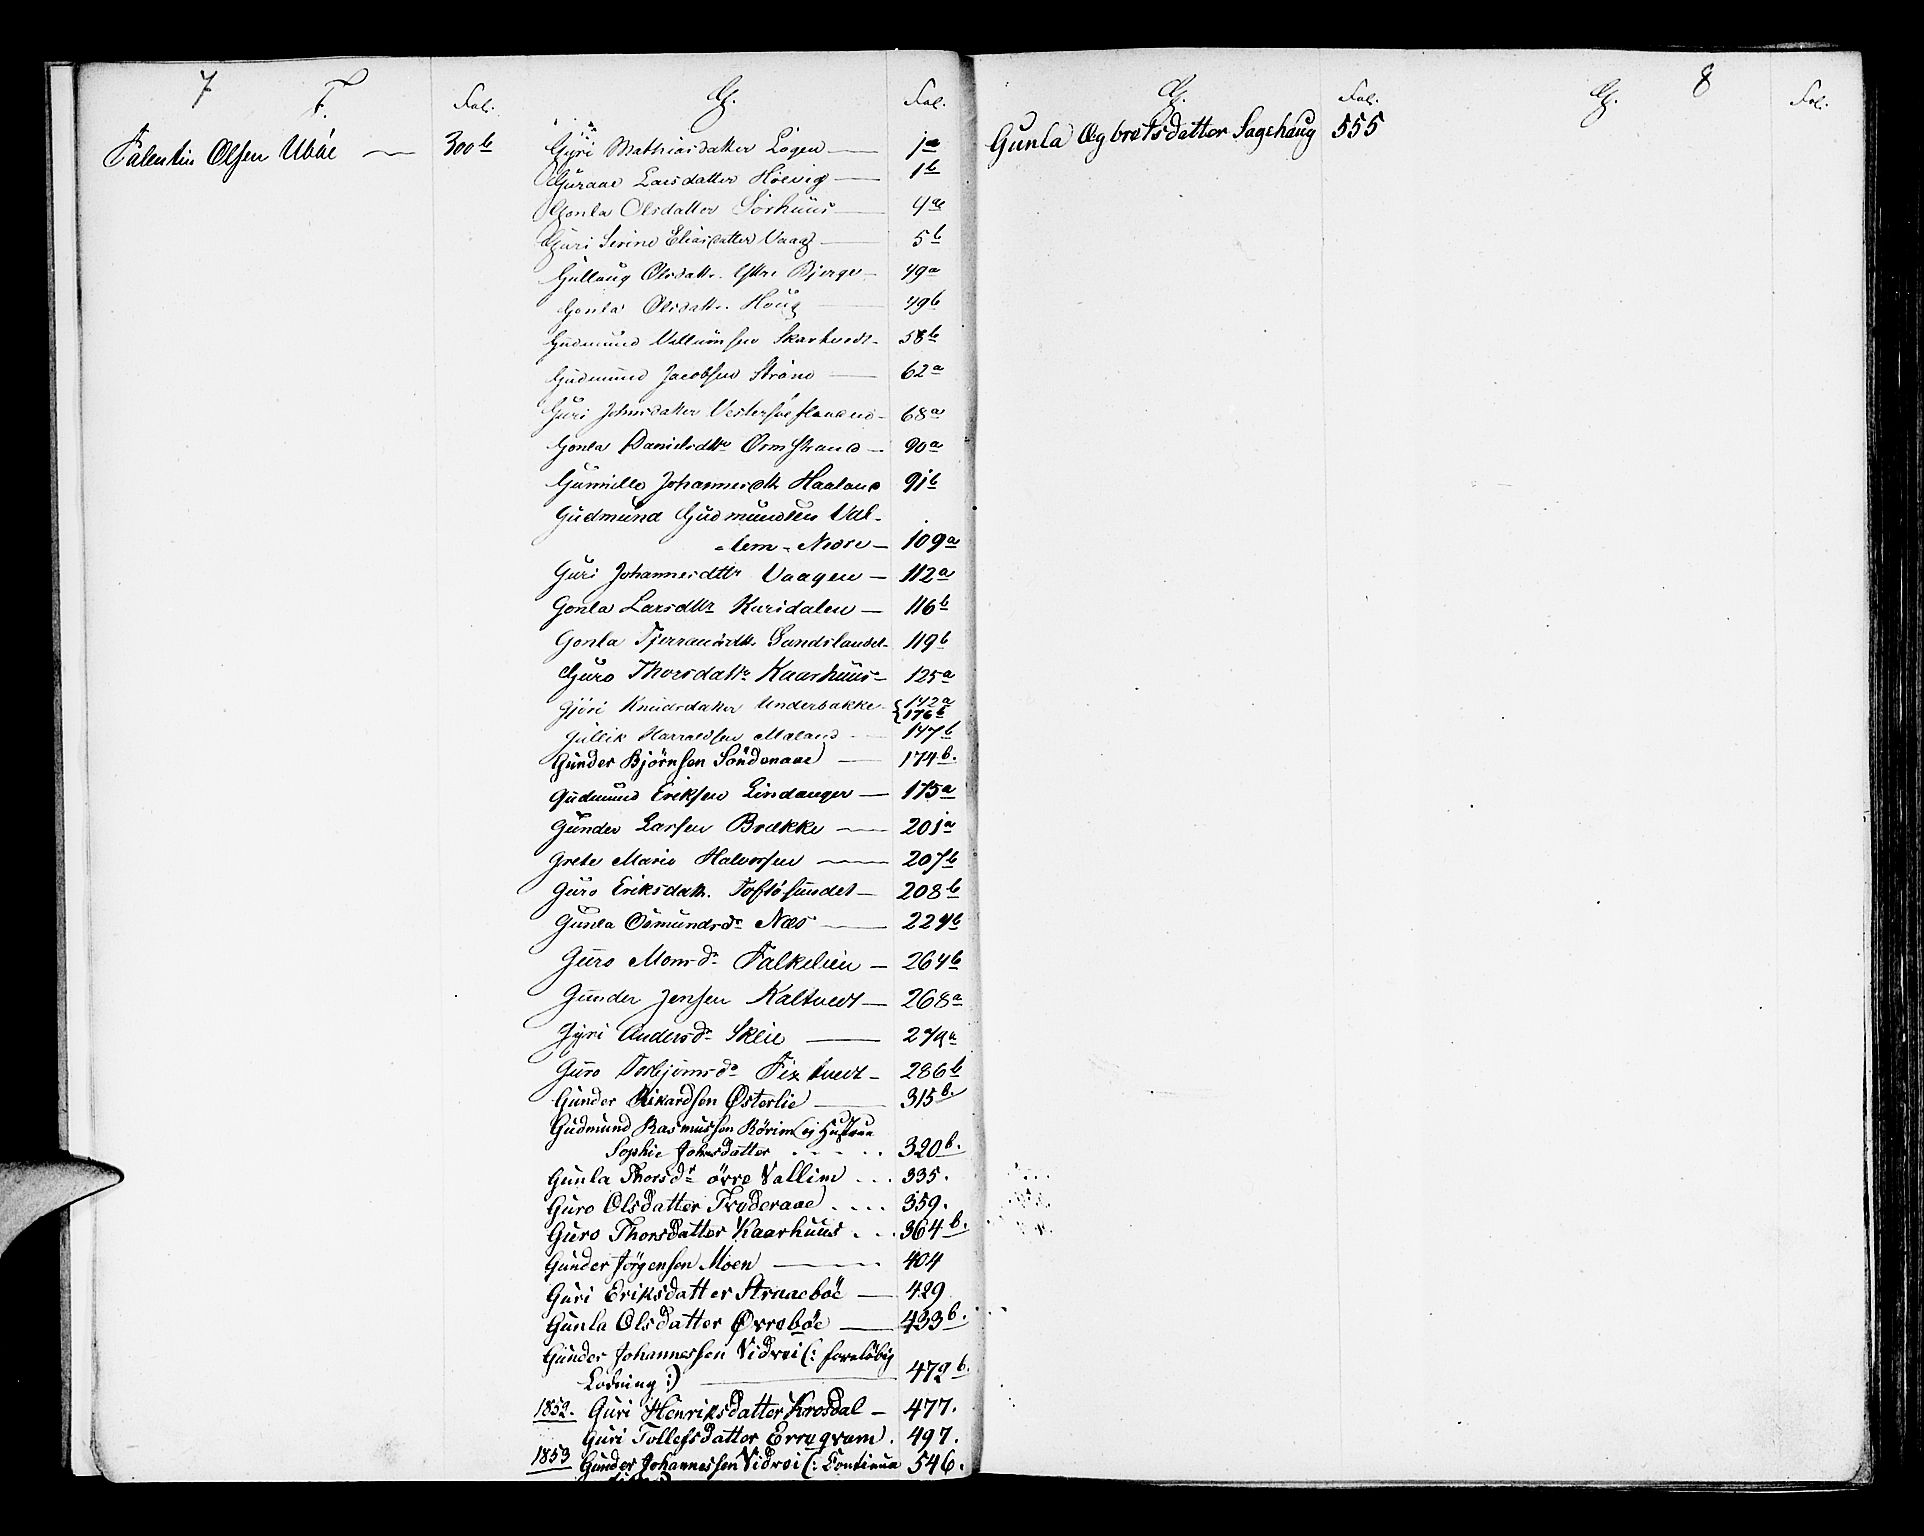 7
F.
Fol.
Falentin Olsen Ubøe — 300b
G.
Fol.
Gyri Mathiasdatter Løgen — 1a
Guraae Larsdatter Höevig — 1b
Gonla Olsdatter Sörhuus — 4a
Guri Serine Eliasdatter Vaag — 5b
Gullaug Olsdattr. Bjerge — 49a
Gonla Olsdattr. Houg — 49b
Gudmund Skartvedt - 58b
Gudmund Jacobsen Strønd — 62a
Guri Johnsdatter - 68a
Gonla Danielsdttr Ormstrand — 90a
Gunnille Johannesdtr Haaland 91b
Gudmund Gudmundsen Val-
-lem - Nedre — 109a
Guri Johannesdttr Vaagen — 112a
Gonla Larsdttr Karidalen — 116b
Gonla Sandslandet - 119b
Guro Thorsdattr Kaarhuus - 125a
Gjöri Knudsdatter Underbakke - { 142a
{ 176b
Gullik Harraldsen Maland — 147b
Gunder Bjørnsen Søndenaae — 174b.
Gudmund Eriksen Lindanger — 175a
Gunder Larsen Brække — 201a
Grete Marie Halvorsen — 207b
Guro Eriksdattr. Toftøsundet — 208b
Gunla Osmundsdr Næs — 224b
Guro Monsdr Falkelien — 264b
Gunder Jensen Kaltvedt — 268a
Gyri Andersdr Skeie — 279a
Guro Torbjørnsdr Fixtvedt — 286b
Gunder Rikardsen Østerlie — 315b.
Gudmund Rasmussen Rörim og Hustrue
Sophie Johnsdatter . . . . . 320b.
Gunla Thorsdr övre Vallim . . . 335.
Guro Olsdatter Tvederaae . . . . 359.
Guro Thorsdatter Kaarhuus . . . 364b.
Gunder Jörgensen Moen — 404
Guri Eriksdatter Strnaebøe — 429
Gunla Olsdatter Øvrebøe — 433b.
Gunder Johannessen Vidvei (: foreløbig
Lodning :) — 472b.
1852. Guri Henriksdatter Krosdal — 477.
Guri Tollefsdatter . 497.
1853 Gunder Johannessen Vidvei (: Continua 546.
G.
Fol.
Gunla Egbretsdatter Sagehaug 555
G.
8
Fol.